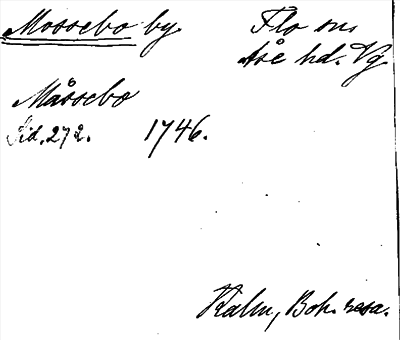 Mossebo by
Flo sn
Åse hd. Vg
Måssebo
Sid. 272. 1746.
Kalm, Boh. resa.